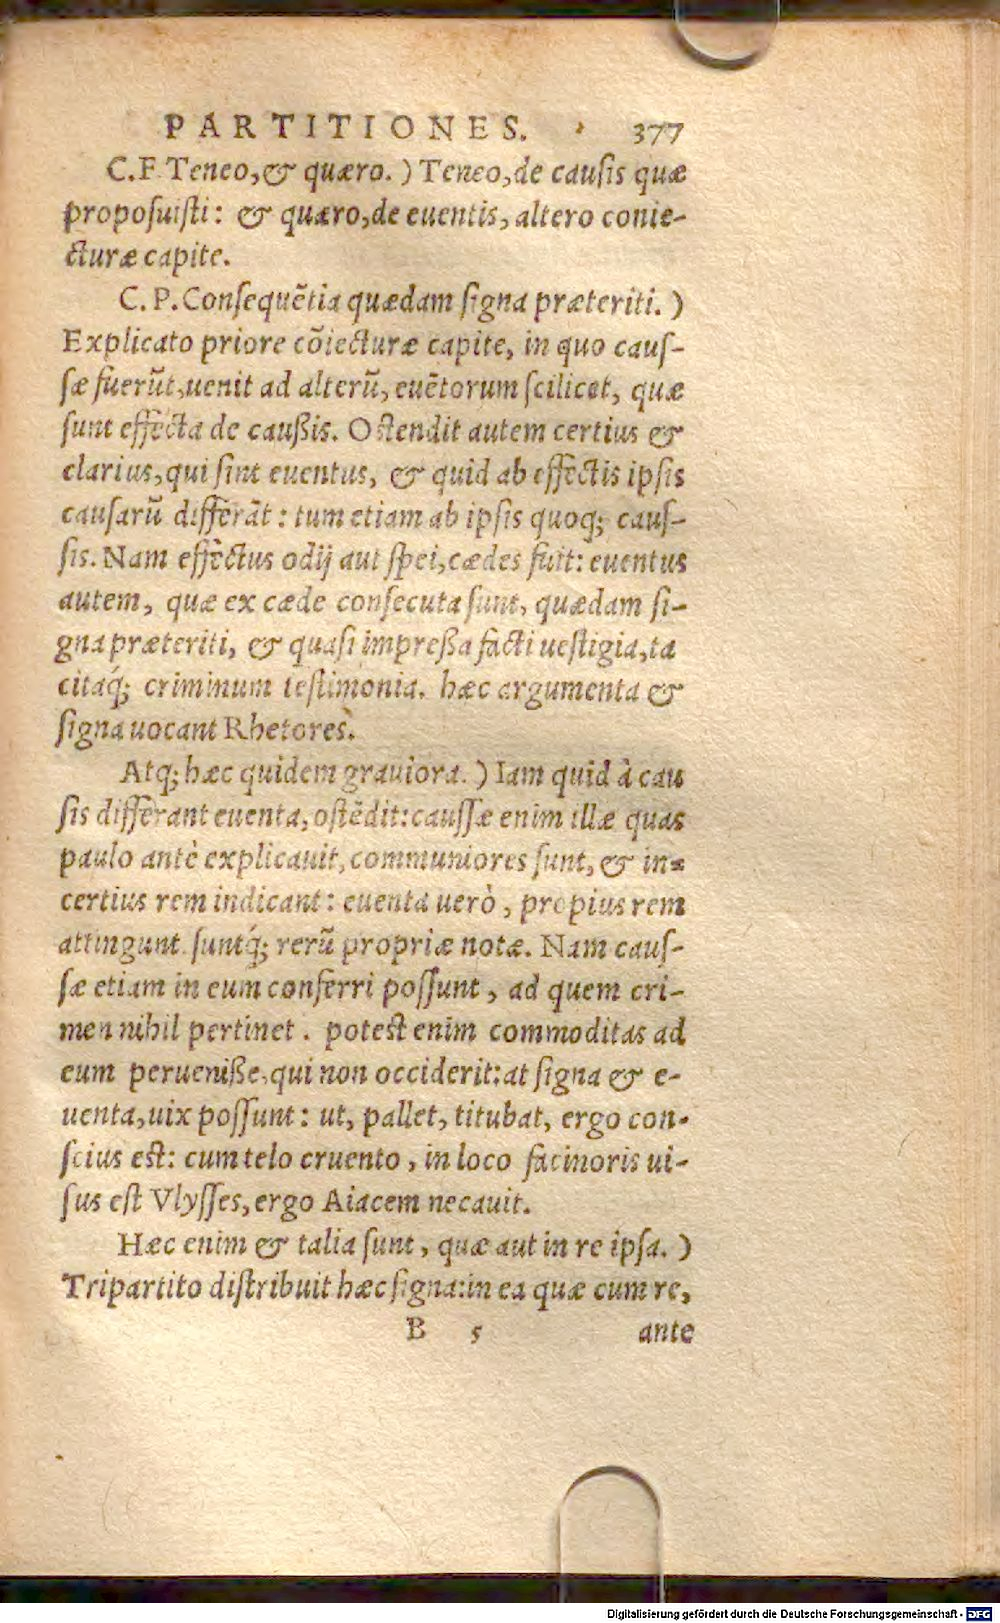 PARTITIONES. 377
C.F. Teneo, & quæro.) Teneo, de causis quæ
proposuisti: & quæro, de euentis, altero conie-
cturæ capite.
C. P. Consequẽtia quædam signa præteriti.)
Explicato priore cõiecturæ capite, in quo caus-
sæ fuerũt, uenit ad alterũ, euẽtorum scilicet, quæ
sunt effecta de caußis. Ostendit autem certius &
clarius, qui sint euentus, & quid ab effectis ipsis
causarũ differãt: tum etiam ab ipsis quoq; caus-
sis. Nam effectus odij aut spei, cædes fuit: euentus
autem, quæ ex cæde consecuta sunt, quædam si-
gna præteriti, & quasi impreßa facti uestigia, ta
citaq́; criminum testimonia. hæc argumenta &
signa uocant Rhetores.
Atq; hæc quidem grauiora.) Iam quid à cau
sis differant euenta, ostẽdit: caussæ enim illæ quas
paulo antè explicauit, communiores sunt, & in-
certius rem indicant: euenta uerò, propius rem
attingunt suntq́; rerũ propriæ notæ. Nam caus-
sæ etiam in eum conferri possunt, ad quem cri-
men nihil pertinet. potest enim commoditas ad
eum perueniße, qui non occiderit: at signa & e-
uenta, uix possunt: ut, pallet, titubat, ergo con-
scius est: cum telo cruento, in loco facinoris ui-
sus est Vlysses, ergo Aiacem necauit.
Hæc enim & talia sunt, quæ aut in re ipsa.)
Tripartito distribuit hæc signa: in ea quæ cum re,
B 5 ante
Digitalisierung gefördert durch die Deutsche Forschungsgemeinschaft - DFG